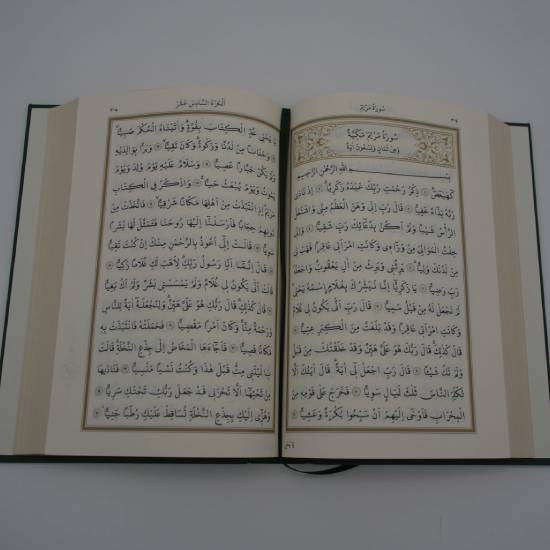 سُورَةُ مَرْيَمَ
سُورَةُ مَرْيَمَ مَكِّيَّةٌ
وَهِيَ ثَمَانٍ وَتِسْعُونَ اٰيَةً
بِسْمِ اللّٰهِ الرَّحْمٰنِ الرَّحِيمِ
كٓهٰيٰعٓصٓ ۝ ذِكْرُ رَحْمَتِ رَبِّكَ عَبْدَهُ زَكَرِيَّا ۝ اِذْ نَادٰى
رَبَّهُ نِدَٓاءً خَفِيًّا ۝ قَالَ رَبِّ اِنِّي وَهَنَ الْعَظْمُ مِنِّي وَاشْتَعَلَ
الرَّأْسُ شَيْبًا وَلَمْ اَكُنْ بِدُعَٓائِكَ رَبِّ شَقِيًّا ۝ وَاِنِّي
خِفْتُ الْمَوَالِيَ مِنْ وَرَٓاءِي وَكَانَتِ امْرَاَتِي عَاقِرًا فَهَبْ لِي
مِنْ لَدُنْكَ وَلِيًّا ۝ يَرِثُنِي وَيَرِثُ مِنْ اٰلِ يَعْقُوبَ وَاجْعَلْهُ
رَبِّ رَضِيًّا ۝ يَا زَكَرِيَّٓا اِنَّا نُبَشِّرُكَ بِغُلَامٍ اسْمُهُ يَحْيٰى لَمْ
نَجْعَلْ لَهُ مِنْ قَبْلُ سَمِيًّا ۝ قَالَ رَبِّ اَنّٰى يَكُونُ لِي غُلَامٌ
وَكَانَتِ امْرَاَتِي عَاقِرًا وَقَدْ بَلَغْتُ مِنَ الْكِبَرِ عِتِيًّا ۝
قَالَ كَذٰلِكَ قَالَ رَبُّكَ هُوَ عَلَيَّ هَيِّنٌ وَقَدْ خَلَقْتُكَ مِنْ قَبْلُ
وَلَمْ تَكُ شَيْـًٔا ۝ قَالَ رَبِّ اجْعَلْ لِٓي اٰيَةً قَالَ اٰيَتُكَ اَلَّا
تُكَلِّمَ النَّاسَ ثَلٰثَ لَيَالٍ سَوِيًّا ۝ فَخَرَجَ عَلٰى قَوْمِهِ مِنَ
الْمِحْرَابِ فَاَوْحٰٓى اِلَيْهِمْ اَنْ سَبِّحُوا بُكْرَةً وَعَشِيًّا ۝
اَلْجُزْءُ السَّادِسَ عَشَرَ
يَا يَحْيٰى خُذِ الْكِتَابَ بِقُوَّةٍ وَاٰتَيْنَاهُ الْحُكْمَ صَبِيًّا ۝
وَحَنَانًا مِنْ لَدُنَّا وَزَكٰوةً وَكَانَ تَقِيًّا ۝ وَبَرًّا بِوَالِدَيْهِ
وَلَمْ يَكُنْ جَبَّارًا عَصِيًّا ۝ وَسَلَامٌ عَلَيْهِ يَوْمَ وُلِدَ وَيَوْمَ
يَمُوتُ وَيَوْمَ يُبْعَثُ حَيًّا ۝ وَاذْكُرْ فِي الْكِتَابِ
مَرْيَمَ اِذِ انْتَبَذَتْ مِنْ اَهْلِهَا مَكَانًا شَرْقِيًّا ۝ فَاتَّخَذَتْ مِنْ
دُونِهِمْ حِجَابًا فَاَرْسَلْنَٓا اِلَيْهَا رُوحَنَا فَتَمَثَّلَ لَهَا بَشَرًا
سَوِيًّا ۝ قَالَتْ اِنِّٓي اَعُوذُ بِالرَّحْمٰنِ مِنْكَ اِنْ كُنْتَ تَقِيًّا
۝ قَالَ اِنَّمَٓا اَنَا۬ رَسُولُ رَبِّكِ لِاَهَبَ لَكِ غُلَامًا زَكِيًّا ۝
قَالَتْ اَنّٰى يَكُونُ لِي غُلَامٌ وَلَمْ يَمْسَسْنِي بَشَرٌ وَلَمْ اَكُ بَغِيًّا
۝ قَالَ كَذٰلِكِ قَالَ رَبُّكِ هُوَ عَلَيَّ هَيِّنٌ وَلِنَجْعَلَهُٓ اٰيَةً لِلنَّاسِ
وَرَحْمَةً مِنَّا وَكَانَ اَمْرًا مَقْضِيًّا ۝ فَحَمَلَتْهُ فَانْتَبَذَتْ بِهِ
مَكَانًا قَصِيًّا ۝ فَاَجَٓاءَهَا الْمَخَاضُ اِلٰى جِذْعِ النَّخْلَةِ قَالَتْ
يَا لَيْتَنِي مِتُّ قَبْلَ هٰذَا وَكُنْتُ نَسْيًا مَنْسِيًّا ۝ فَنَادٰيهَا
مِنْ تَحْتِهَٓا اَلَّا تَحْزَنِي قَدْ جَعَلَ رَبُّكِ تَحْتَكِ سَرِيًّا ۝
وَهُزِّٓي اِلَيْكِ بِجِذْعِ النَّخْلَةِ تُسَاقِطْ عَلَيْكِ رُطَبًا جَنِيًّا ۝